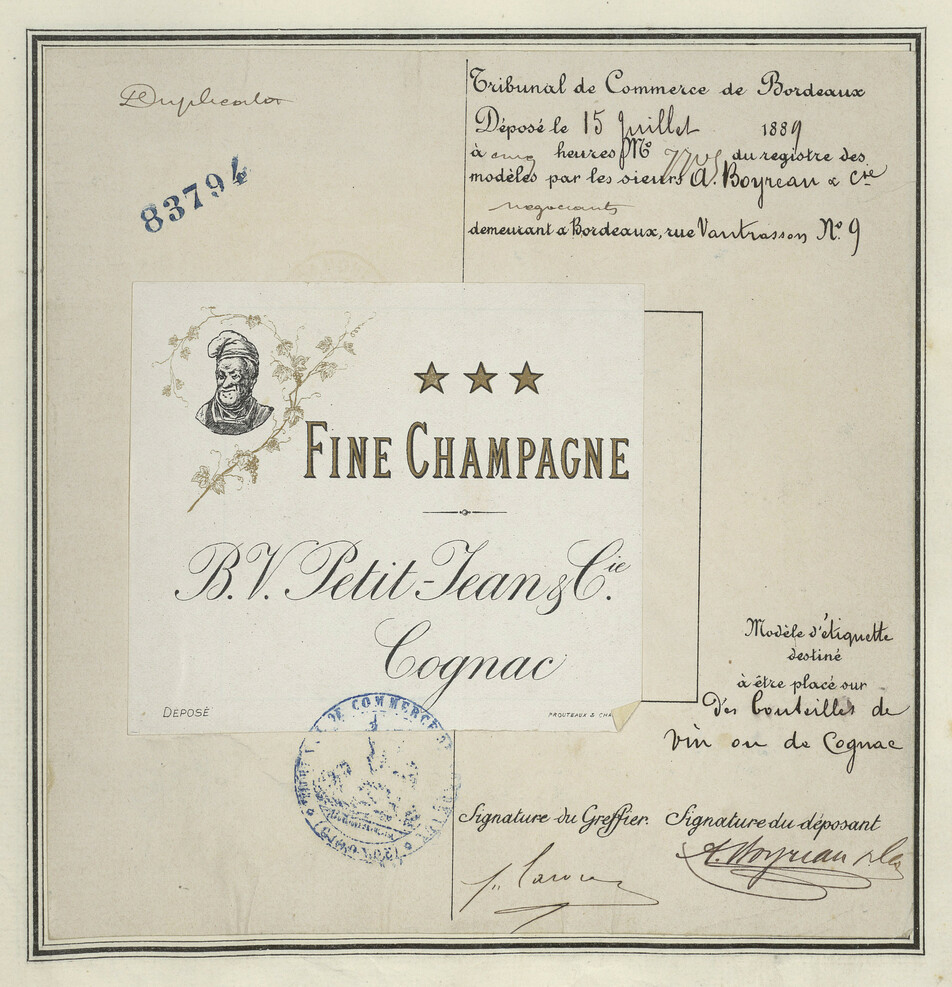 Duplicata
83794
Tribunal de Commerce de Bordeaux
Déposé le 15 Juillet 1889
à cinq heures Nº du registre des
modèles par les sieurs A. Boyreau & Cie
négociants
demeurant à Bordeaux, rue Vantrasson Nº 9
FINE CHAMPAGNE
B.V. Petit-Jean & Cie.
Cognac
DÉPOSÉ
PROUTEAUX &
DE COMMERCE
Modèle d'étiquette
destiné
à être placé sur
des bouteilles de
vin ou de Cognac
Signature du Greffier. Signature du déposant
A. Boyreau & Cie